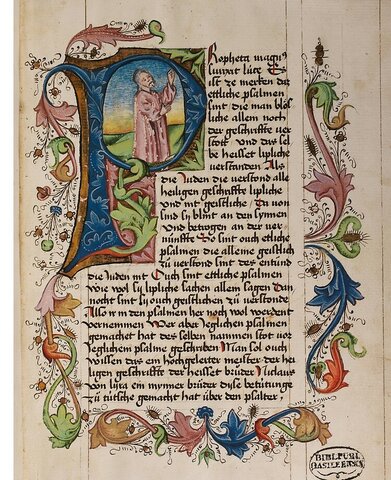 Propheta magnus
surrexit lüte Es
ist ze merken dz
ettliche psalmen
sint die man blös
liche allem noch
der geschrifft ver
stot und das sel
be heisset lipliche
verstanden Als
die Juden die verstond alle
heiligen geschrifft lipliche
und nit geistliche Da von
sind sy blint an den synnen
und betrogen an der ver
nünfft So sint ouch etliche
psalmen die alleine geistlich
zü verstond sint des entünd
die Juden nit Ouch sint ettliche psalmen
wie wol sy lipliche sachen allem sagen Dan
nocht sint sy ouch geistlichen zü verstonde
Also in den psalmen her noch wol werdent
vernemmen Wer aber yeglichen psalmen
gemachet hat des selben nammen stot vor
yeglichem psalme geschriben Man sol ouch
wissen das ein hochgeleiter meister der hei
ligen geschrifft der heisset brüder Niclaus
von lyra ein mynner brüder dyse betütunge
zü tütsche gemacht hat über den psalter
BIBL. PUBL.
BASILEENSIS